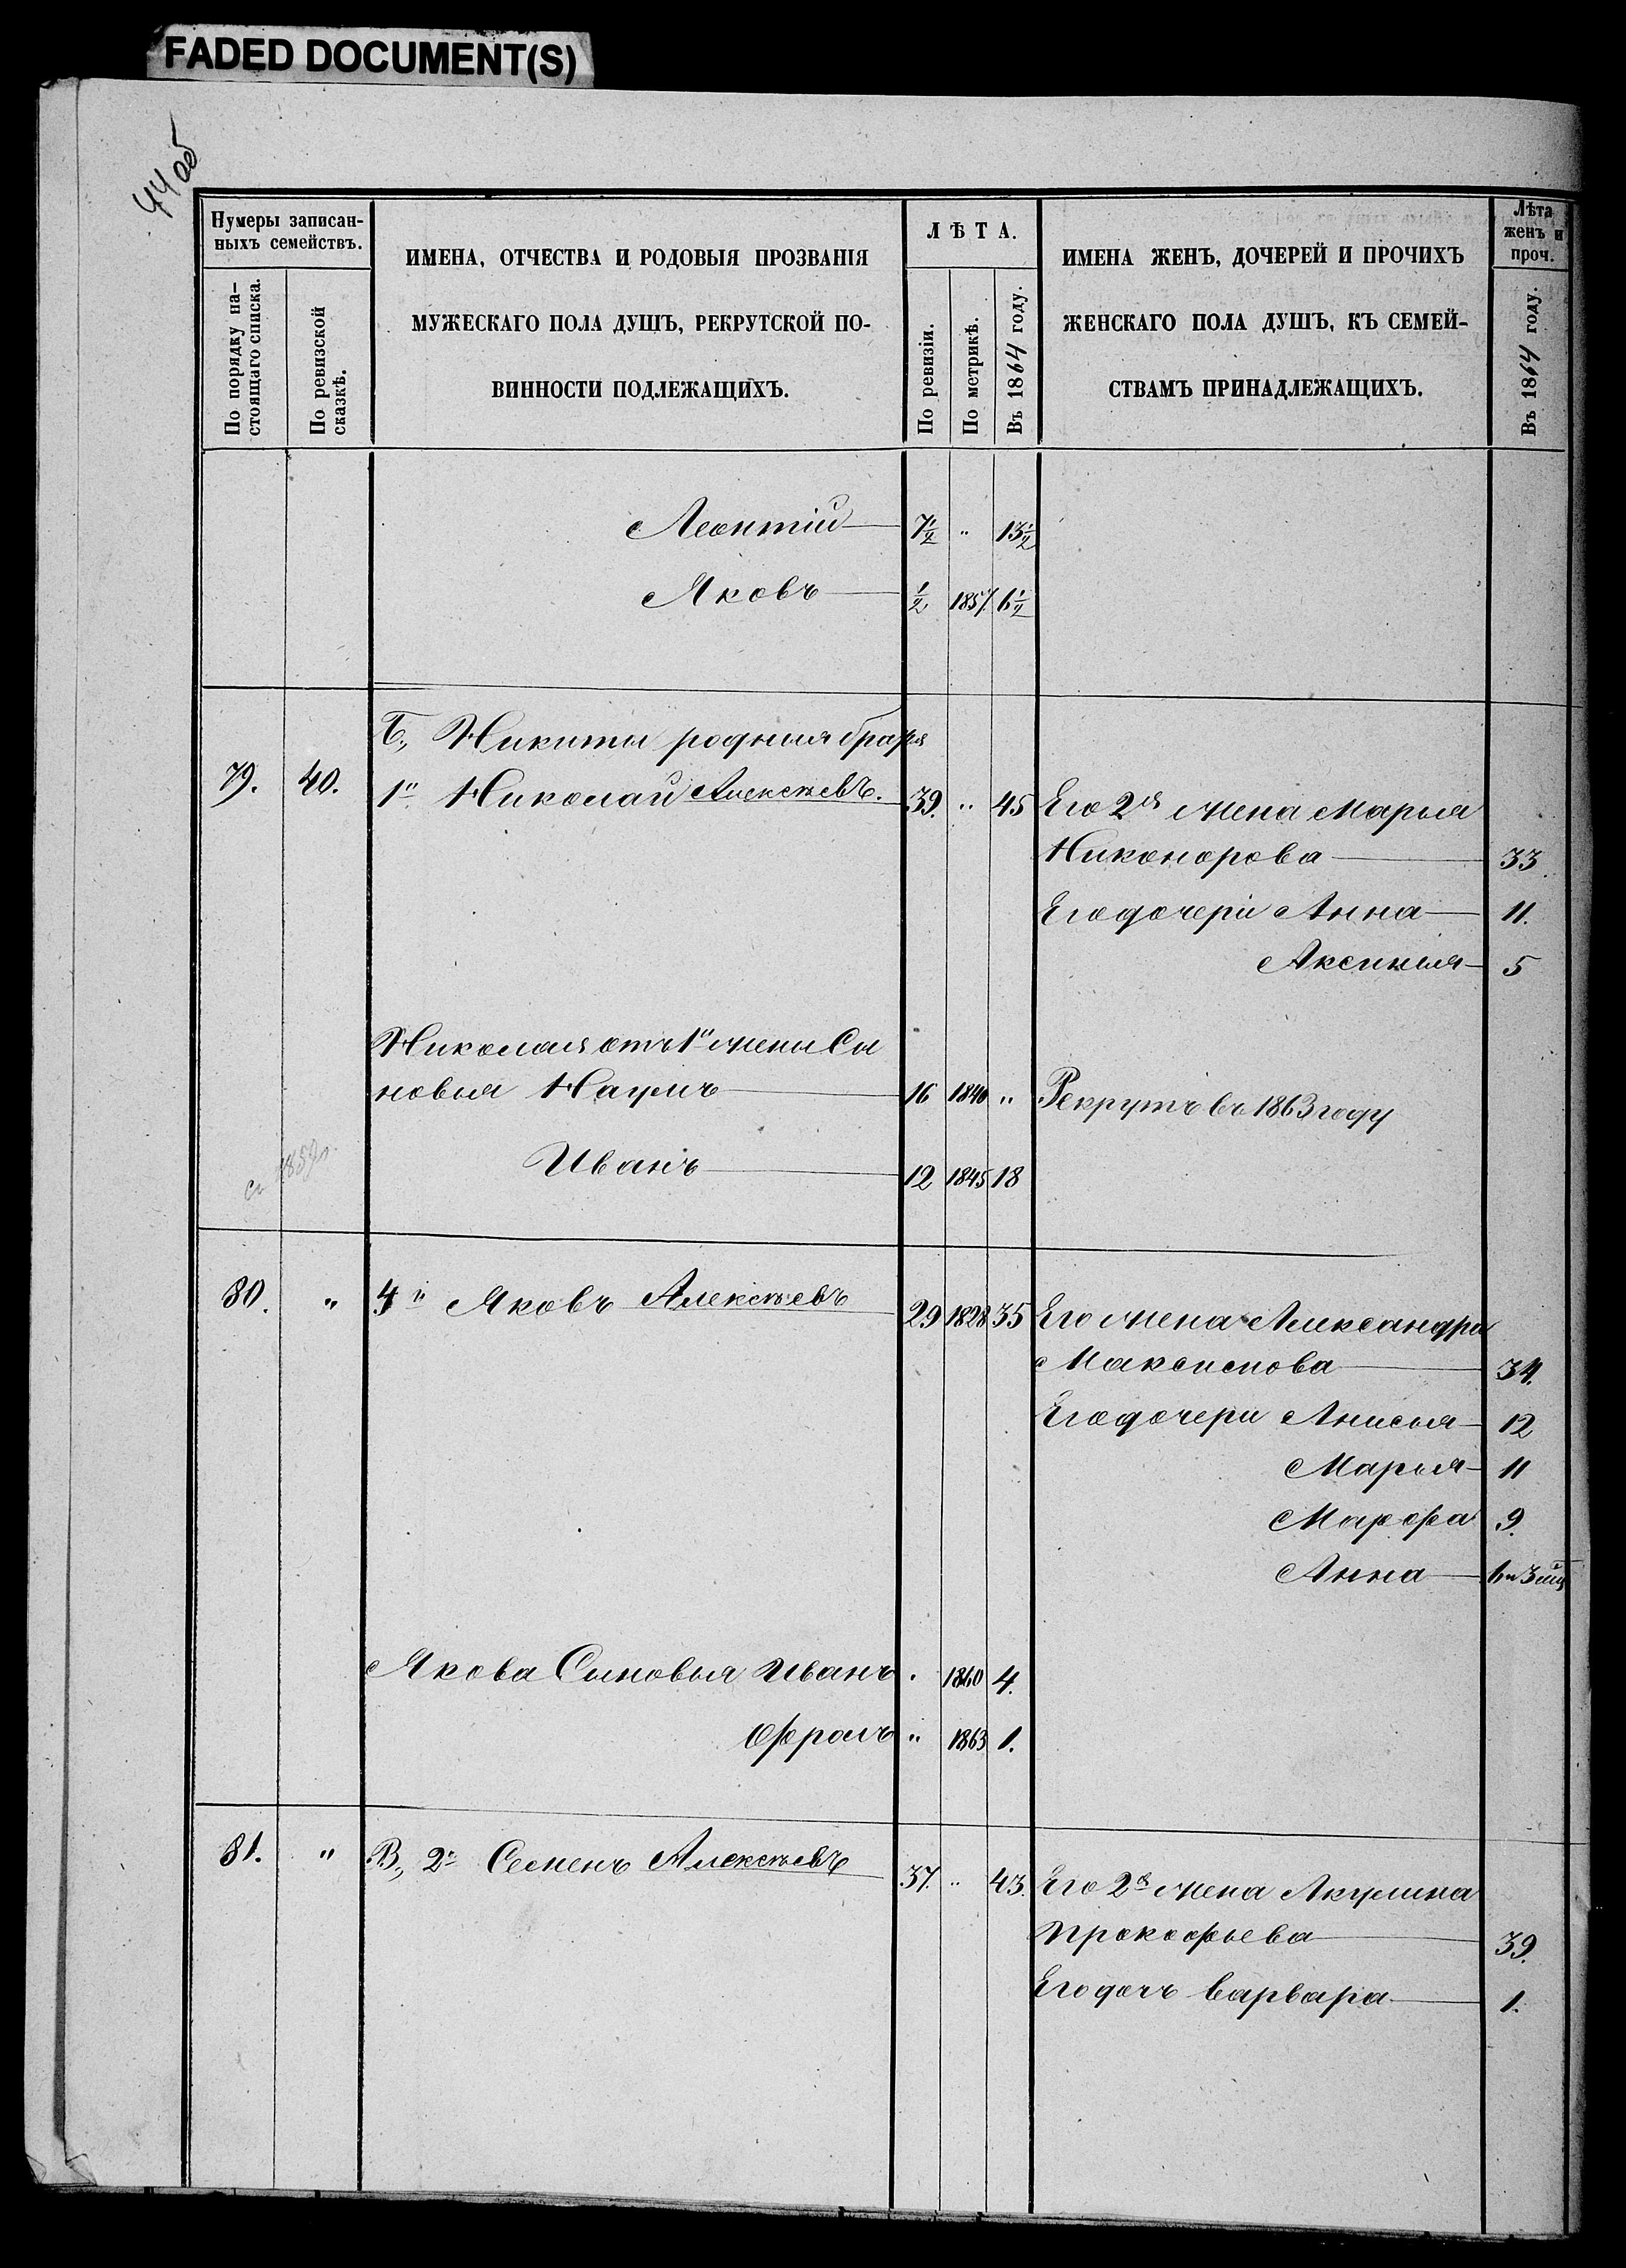 FADED DOCUMENT(S)
44 об
Нумеры записан-
ныхъ семействъ.
По порядку на-
стоящаго списка.
По ревизской
сказкѣ.
ИМЕНА, ОТЧЕСТВА И РОДОВЫЯ ПРОЗВАНІЯ
МУЖЕСКАГО ПОЛА ДУШЪ, РЕКРУТСКОЙ ПО-
ВИННОСТИ ПОДЛЕЖАЩИХЪ.
ЛѢТА.
По ревизіи.
По метрикѣ.
Въ 1864 году.
ИМЕНА ЖЕНЪ, ДОЧЕРЕЙ И ПРОЧИХЪ
ЖЕНСКАГО ПОЛА ДУШЪ, КЪ СЕМЕЙ-
СТВАМЪ ПРИНАДЛЕЖАЩИХЪ.
Лѣта
женъ и
проч.
Въ 1864 году.
Леонтій 7½ " 13½
Яковъ ½ 1857 6½
Б., Никиты родныя братья
79. 40. 1й Николай Алексѣевъ. 39. " 45 Его 2я жена Марья
Никонорова 33.
Его дочери Анна 11.
Аксинья 5
Николая отъ 1й жены Сы
новья Наумъ 16 1840 " Рекрутъ въ 1863 году
Иванъ 12 1845 18
80. " 4й Яковъ Алексѣевъ 29 1828 35 Его жена Александра
Максимова 34.
Его дочери Анисья 12
Марья 11
Марфа 9.
Анна 1 и 3 мѣц
Якова Сыновья Иванъ " 1860 4.
Фролъ " 1863 1.
81. " В., 2й Семенъ Алексѣевъ 37. " 43. Его 2я жена Акулина
Прокофьева 39.
Его дочь Варвара 1.